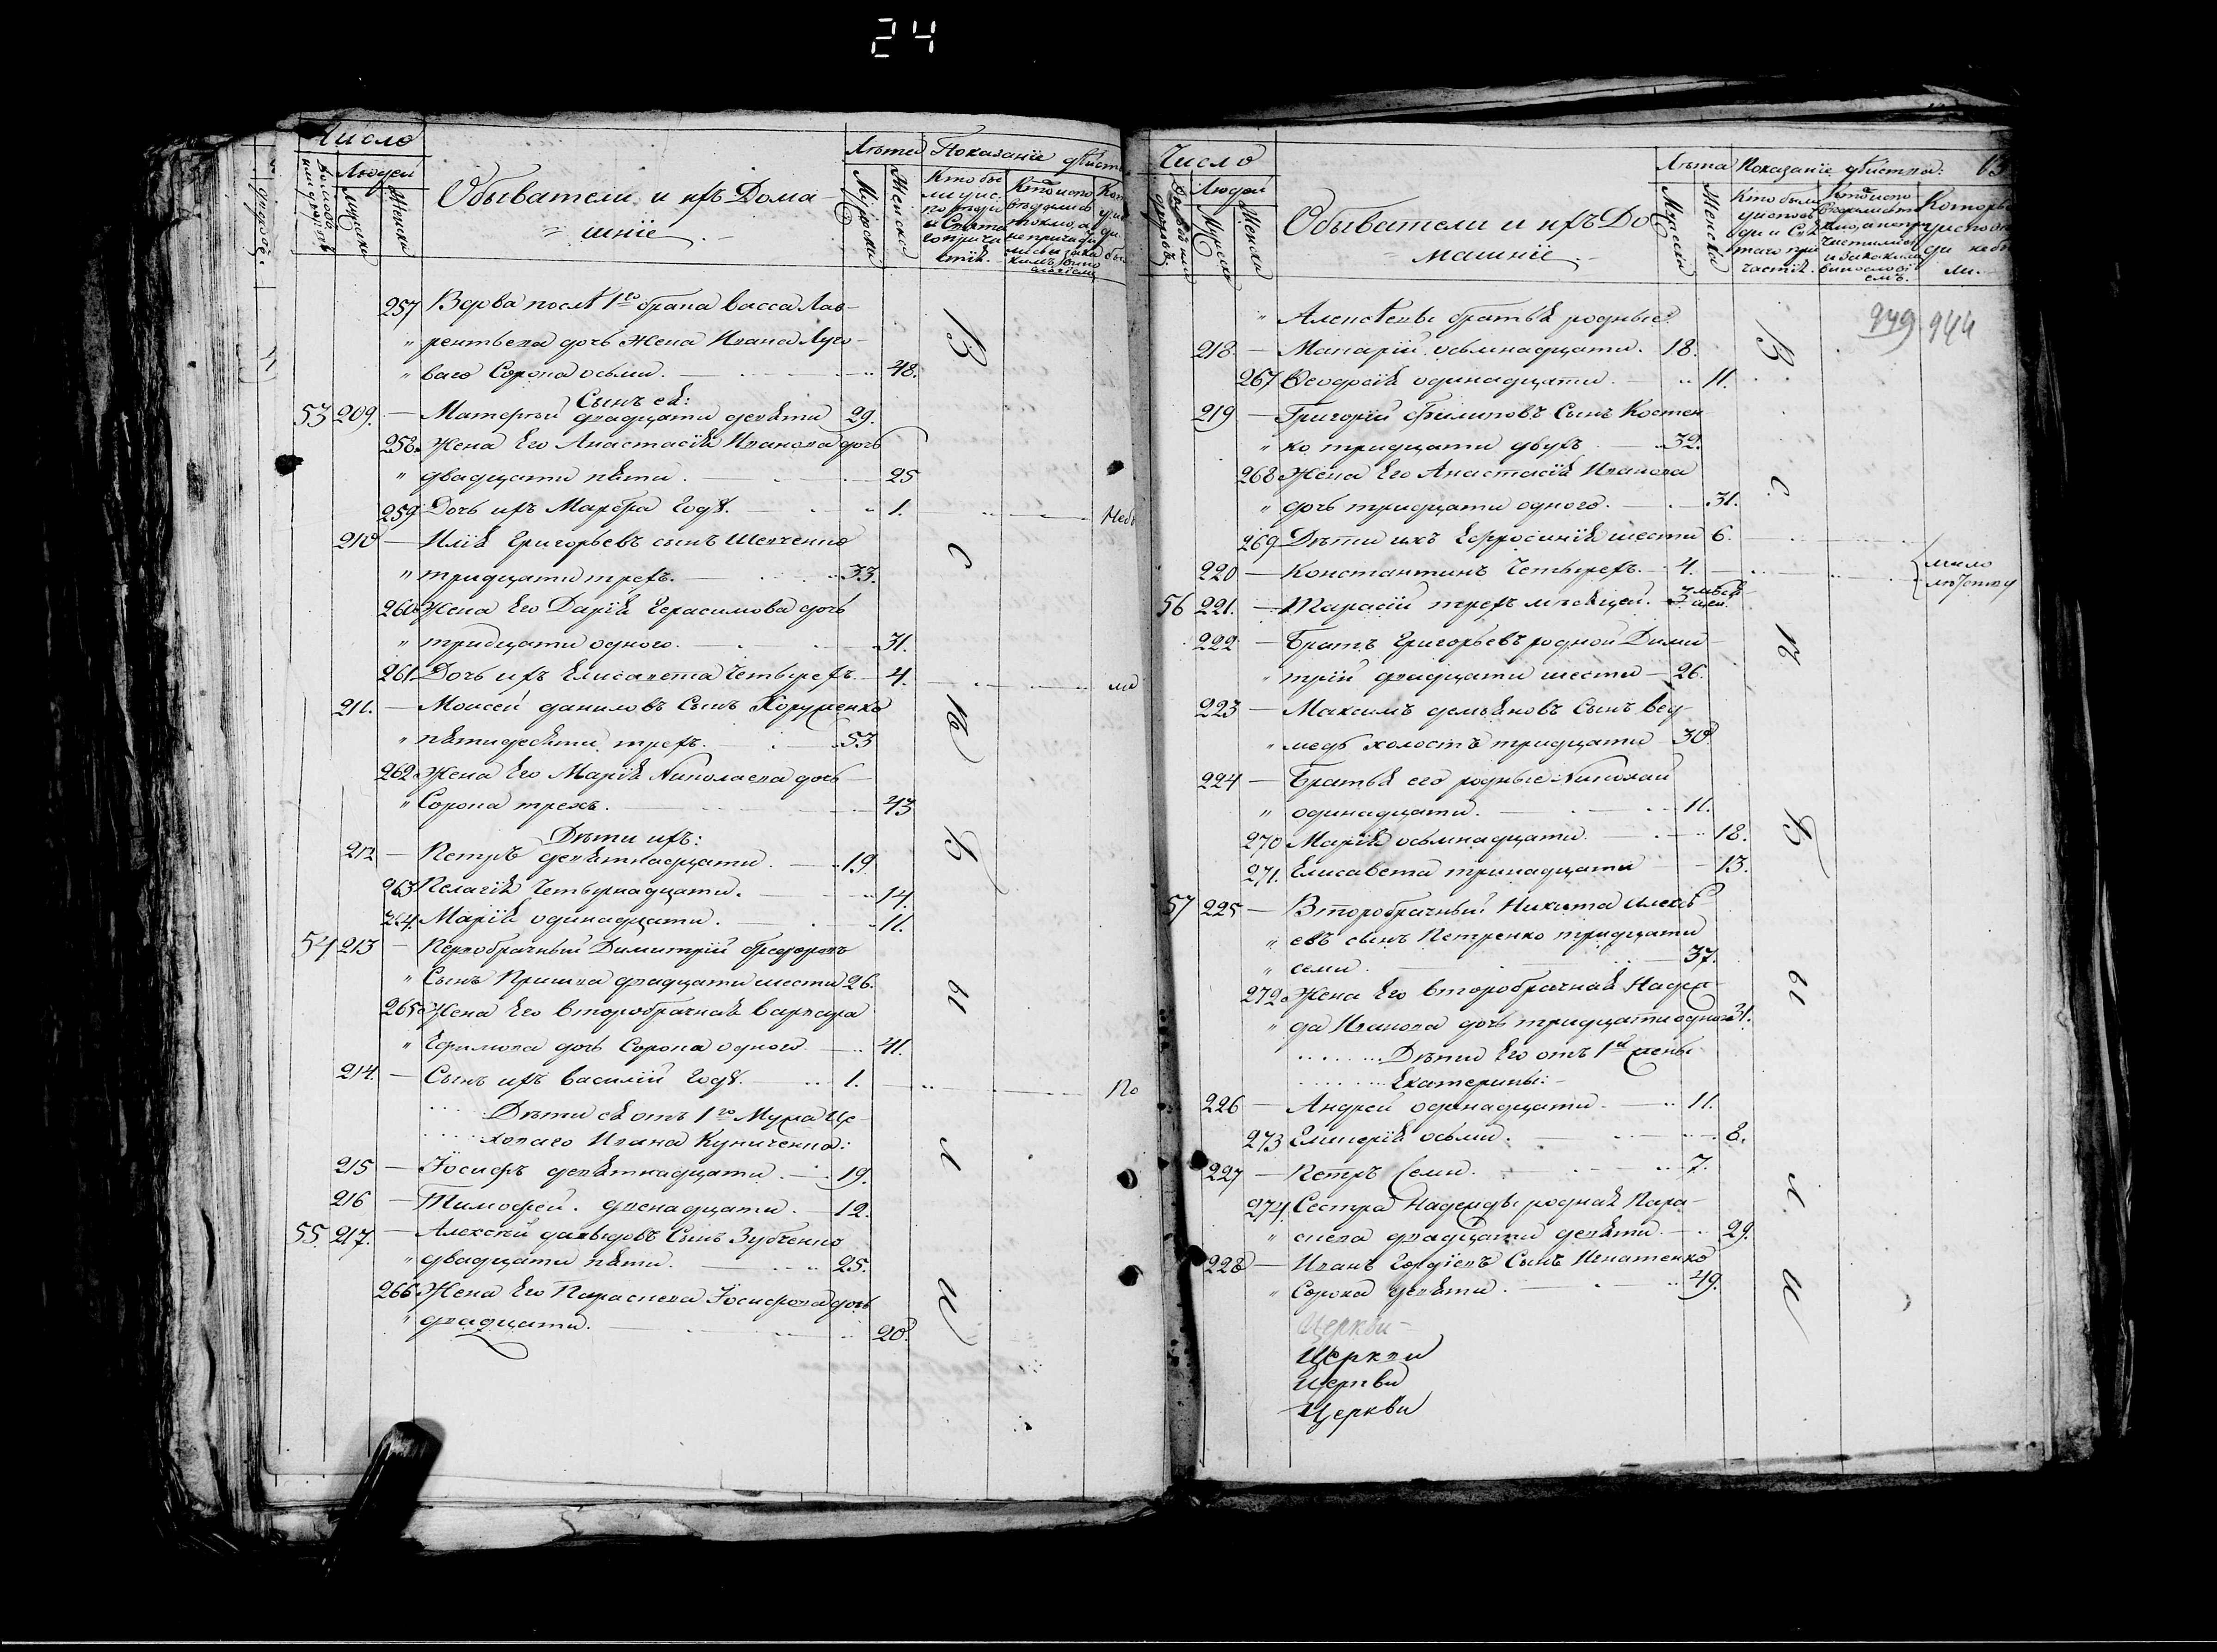 24
Число
Людей
Мужска
Женска
Обыватели и ихъ Дома
шніе
Лѣта
Мужска
Женска
Показаніе дѣйств
257 Вдова послѣ 1го брака васса Лав-
" рентьева дочь жена Ивана Луго-
" ваго Сорока осьми. 48.
Сынъ ея:
53 209. — Матерный двадцати девяти 29.
258. Жена Его Анастасія Иванова дочь
" двадцати пяти. 25
259 Дочь ихъ Марѳа Году. 1. Небы
210 — Илія Григорьевъ сынъ Шевченко
" тридцати трехъ. 33.
260 Жена Его Дарія Герасимова дочь
" тридцати одного. 31.
261 Дочь ихъ Елисавета Четырехъ. 4.
211. — Моисей даниловъ Сынъ Хоруженко
" пятидесяти трехъ. 53
262 Жена Его Марія Николаева дочь
" Сорока трехъ. 43
Дѣти ихъ:
212 — Петръ девятнадцати. 19.
263 Пелагія Четырнадцати. 14.
264. Марія одинадцати. 11.
54 213 — Первобрачный Димитрій Ѳеодоровъ
" Сынъ Пришва двадцати шести 26.
265 Жена Его второбрачная варвара
" Ефимова дочь Сорока одного. 41.
214. — Сынъ ихъ василій Году. 1. По
Дѣти ея отъ 1го Мужа Це-
ховаго Ивана Куниченка:
215 — Іосифъ девятнадцати. 19.
216 — Тимофей. двенадцати. 12.
55. 217. — Алексѣй давыдовъ Сынъ Зубченко
" двадцати пяти. 25.
266 Жена Его Параскева Іосифова дочь
" двадцати. 20.
Число
Людей
Мужска
Женска
Обыватели и ихъ До
машніе.
Лѣта
Мужска
Женска
Показаніе дѣйства:
949 944
" Алексѣевы братья родные
218. — Макарій осьмнадцати. 18.
267 Ѳеодосія одинадцати. 11.
219 — Григорій Филиповъ Сынъ Костен
" ко тридцати двухъ 32.
268 Жена Его Анастасія Иванова
" дочь тридцати одного. 31.
269 Дѣти ихъ Ефросинія шести 6.
220 — Константинъ Четырехъ. 4. мало
лѣтству
56 221. — Тарасій трехъ мѣсяцей. 3 мѣся
цей.
222 — Братъ Григорьевъ родной Дими
" трій двадцати шести 26.
223 — Максимъ демьяновъ Сынъ вед-
" медь холостъ тридцати 30.
224 — Братья его родные Николай
" одинадцати. 11.
270 Марія осьмнадцати. 18.
271. Елисавета тринадцати 13.
57 225 — Второбрачный Никита Алексѣ
" евъ сынъ Петренко тридцати
" семи. 37.
272 Жена Его второбрачная Надеж
" да Иванова дочь тридцати одного 31.
Дѣти Его отъ 1й жены
Екатерины:
226 — Андрей одинадцати. 11.
273 Гликерія осьми. 8.
227 — Петръ Семи. 7.
274. Сестра Надежды родная Пара-
" скева двадцати девяти. 29.
228 — Иванъ Гордіевъ Сынъ Игнатенко
" Сорока девяти. 49.
Церкви
Церкви
Церкви
Церкви